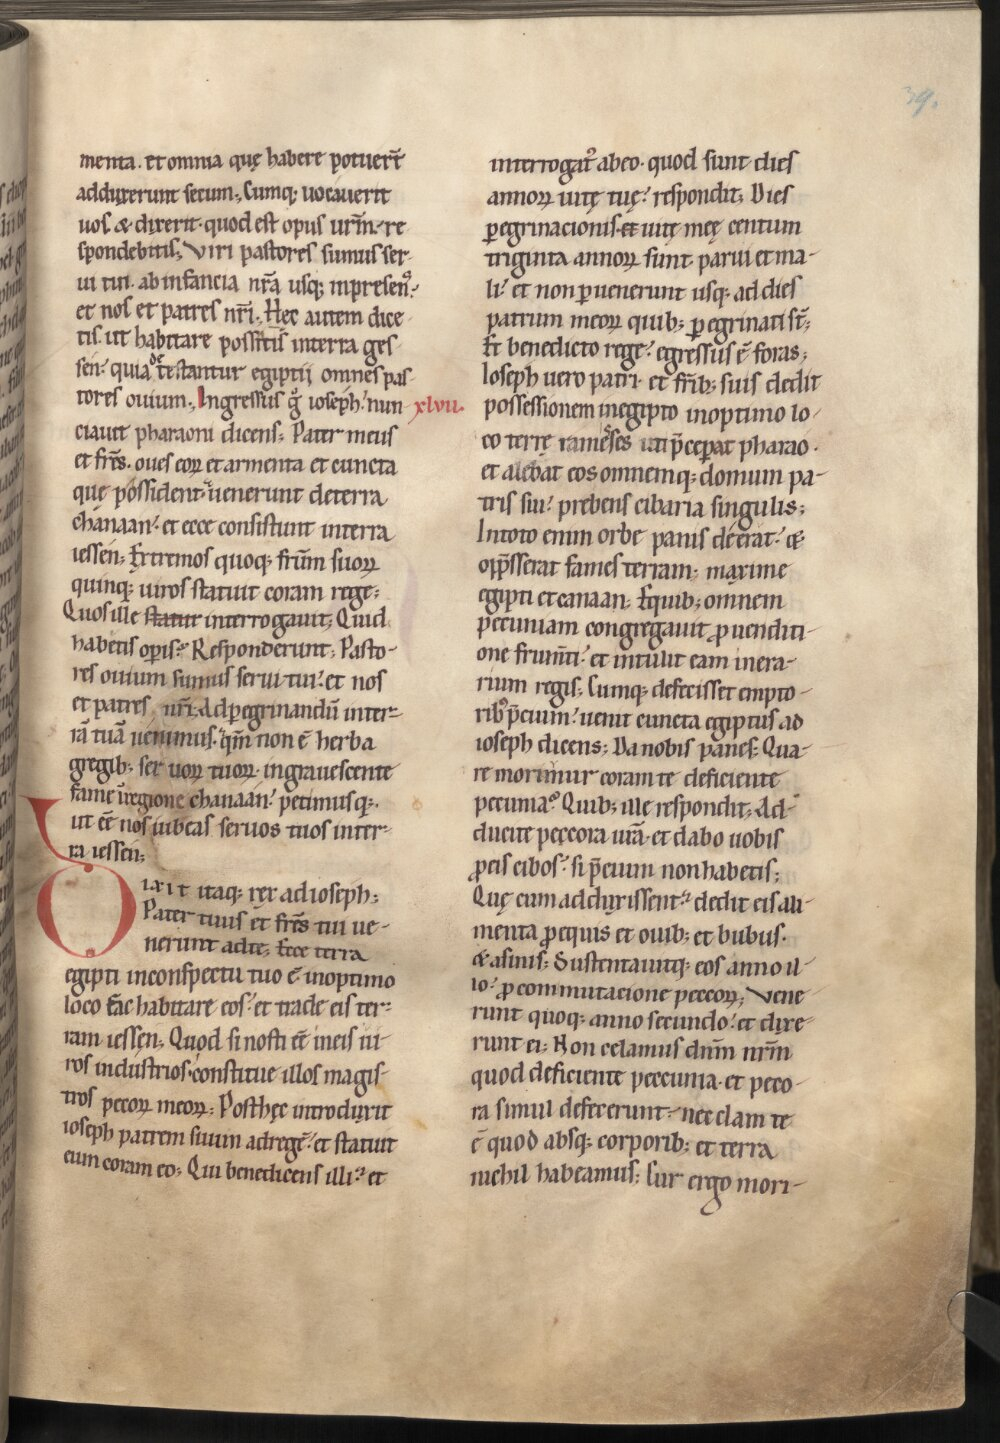 39.
menta. et omnia quę habere potuer̄t
adduxerunt secum; Cumq; uocauerit
uos. & dixerit. quod est opus ur̄m. re
spondebitis; Viri pastores sumus ser-
ui tui. ab infancia nr̄a usq; inpresens.
et nos et patres nr̄i. Hec autem dice-
tis. ut habitare possitis interra ges-
sen. quia detestantur egiptij omnes pas-
tores ouium. Ingressus g̊ ioseph. nun xlvii.
ciauit pharaoni dicens; Pater meus
et fr̄es. oues eoꝝ et armenta et cuncta
quę possident. uenerunt deterra
chanaan. et ecce consistunt interra
iessen; Extremos quoq; fr̄um suoꝝ
quinq; uiros statuit coram rege;
Quos ille statut interrogauit; Quid
habetis oꝑis? Responderunt; Pasto-
res ouium sumus serui tui. et nos
et patres nr̄i. Ad ꝑegrinandū inter-
rā tuā uenimus. qm̄ non ē herba
gregib; seruoꝝ tuoꝝ. ingrauescente
fame regione chanaan. petimusq;
ut ēē nos iubeas seruos tuos inter-
ra iessen;
Dixit itaq; rex ad ioseph;
Pater tuus et fr̄es tui ue-
nerunt adte; Ecce terra
egipti inconspectu tuo ē. inoptimo
loco fac habitare eos. et trade eis ter-
ram iessen; Quod si nosti ēē ineis ui-
ros industrios. constitue illos magis-
tros pecoꝝ meoꝝ; Posthęc introduxit
ioseph patrem suum adregē. et statuit
eum coram eo; Qui benedicens illi. et
interrogat᷒ abeo. quod sunt dies
annoꝝ uitę tuę? respondit; Dies
ꝑegrinacionis et uitę meę centum
triginta annoꝝ sunt. parui et ma-
li. et non ꝑuenerunt usq; ad dies
patrum meoꝝ quib; ꝑegrinati st̄;
Et benedicto rege. egressus ē foras;
Ioseph uero patri. et fr̄ib; suis dedit
possessionem inegipto inoptimo lo-
co terrę rameses uti p̄ceperat pharao.
et alebat eos omnemq; domum pa-
tris sui. prebens cibaria singulis;
Intoto enim orbe panis deerat. &
opp̄sserat fames terram; maxime
egipti et canaan; Equib; omnem
pecuniam congregauit ꝓ uenditi-
one frum̄ti. et intulit eam inera-
rium regis; Cumq; defecisset empto-
rib᷒ p̄cium. uenit cuncta egiptus ad
ioseph dicens; Da nobis panes; Qua-
re morimur coram te deficiente
pecunia? Quib; ille respondit; Ad-
ducite peccora ur̄a. et dabo uobis
ꝓ eis cibos. si p̄cium non habetis;
Quę cum adduxissent. dedit eis ali-
menta ꝓ equis et ouib; et bubus.
& asinis; Sustentauitq; eos anno il-
lo. ꝓ commutacione peccoꝝ; Vene-
runt quoq; anno secundo. et dixe-
runt ei; Non celamus dn̄m nr̄m
quod deficiente peccunia. et peco-
ra simul defecerunt. nec clam te
ē quod absq; corporib; et terra
nichil habeamus; Cur ergo mori-